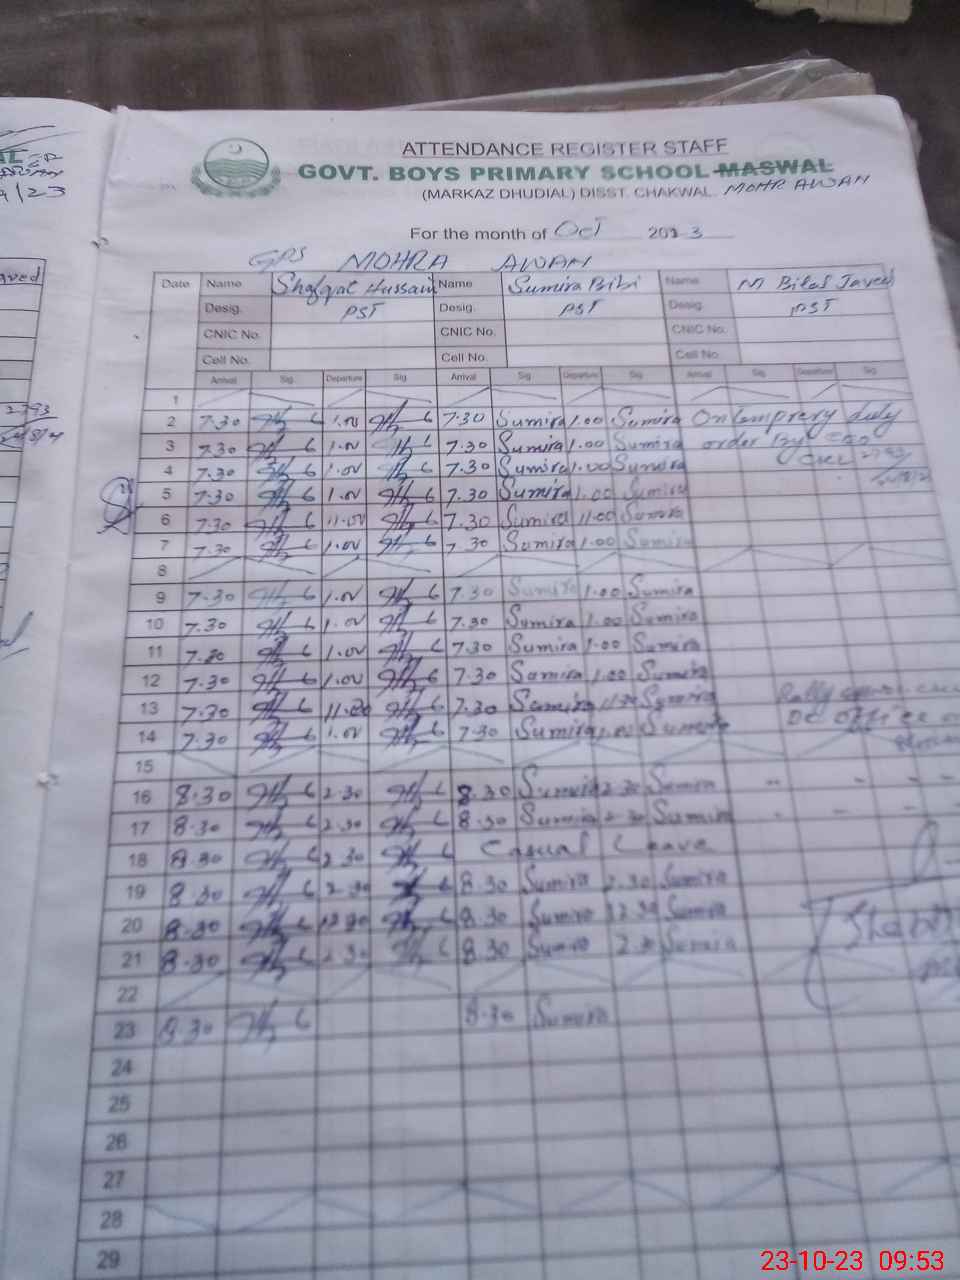 ATTENDANCE REGISTER STAFF
GOVT. BOYS PRIMARY SCHOOL MASWAL
(MARKAZ DHUDIAL) DISST. CHAKWAL. MOHR AWAN
For the month of Oct 2023
GPS MOHRA AWAN
Date Name Shafqat Hussain Name Sumira Bibi Name M Bilal Javed
Desig. PST Desig. PST Desig. PST
CNIC No. CNIC No. CNIC No.
Cell No. Cell No. Cell No.
Arrival Sig Departure Sig Arrival Sig Departure Sig Arrival Sig Departure Sig
1
2 7.30 1.00 7.30 Sumira 1.00 Sumira On temprery duty
3 7.30 1.00 7.30 Sumira 1.00 Sumira order By
4 7.30 1.00 7.30 Sumira 1.00 Sumira
5 7.30 1.00 7.30 Sumira 1.00 Sumira
6 7.30 11.00 7.30 Sumira 11.00 Sumira
7 7.30 1.00 7.30 Sumira 1.00 Sumira
8
9 7.30 1.00 7.30 Sumira 1.00 Sumira
10 7.30 1.00 7.30 Sumira 1.00 Sumira
11 7.30 1.00 7.30 Sumira 1.00 Sumira
12 7.30 1.00 7.30 Sumira 1.00 Sumira
13 7.30 11.00 7.30 Sumira 11.00 Sumira Rally
14 7.30 1.00 7.30 Sumira 1.00 Sumira DC office
15
16 8.30 2.30 8.30 Sumira 2.30 Sumira
17 8.30 2.30 8.30 Sumira 2.30 Sumira
18 8.30 2.30 Casual Leave
19 8.30 2.30 8.30 Sumira 2.30 Sumira
20 8.30 12.30 8.30 Sumira 12.30 Sumira
21 8.30 2.30 8.30 Sumira 2.30 Sumira
22
23 8.30 8.30 Sumira
24
25
26
27
28
29
23-10-23 09:53